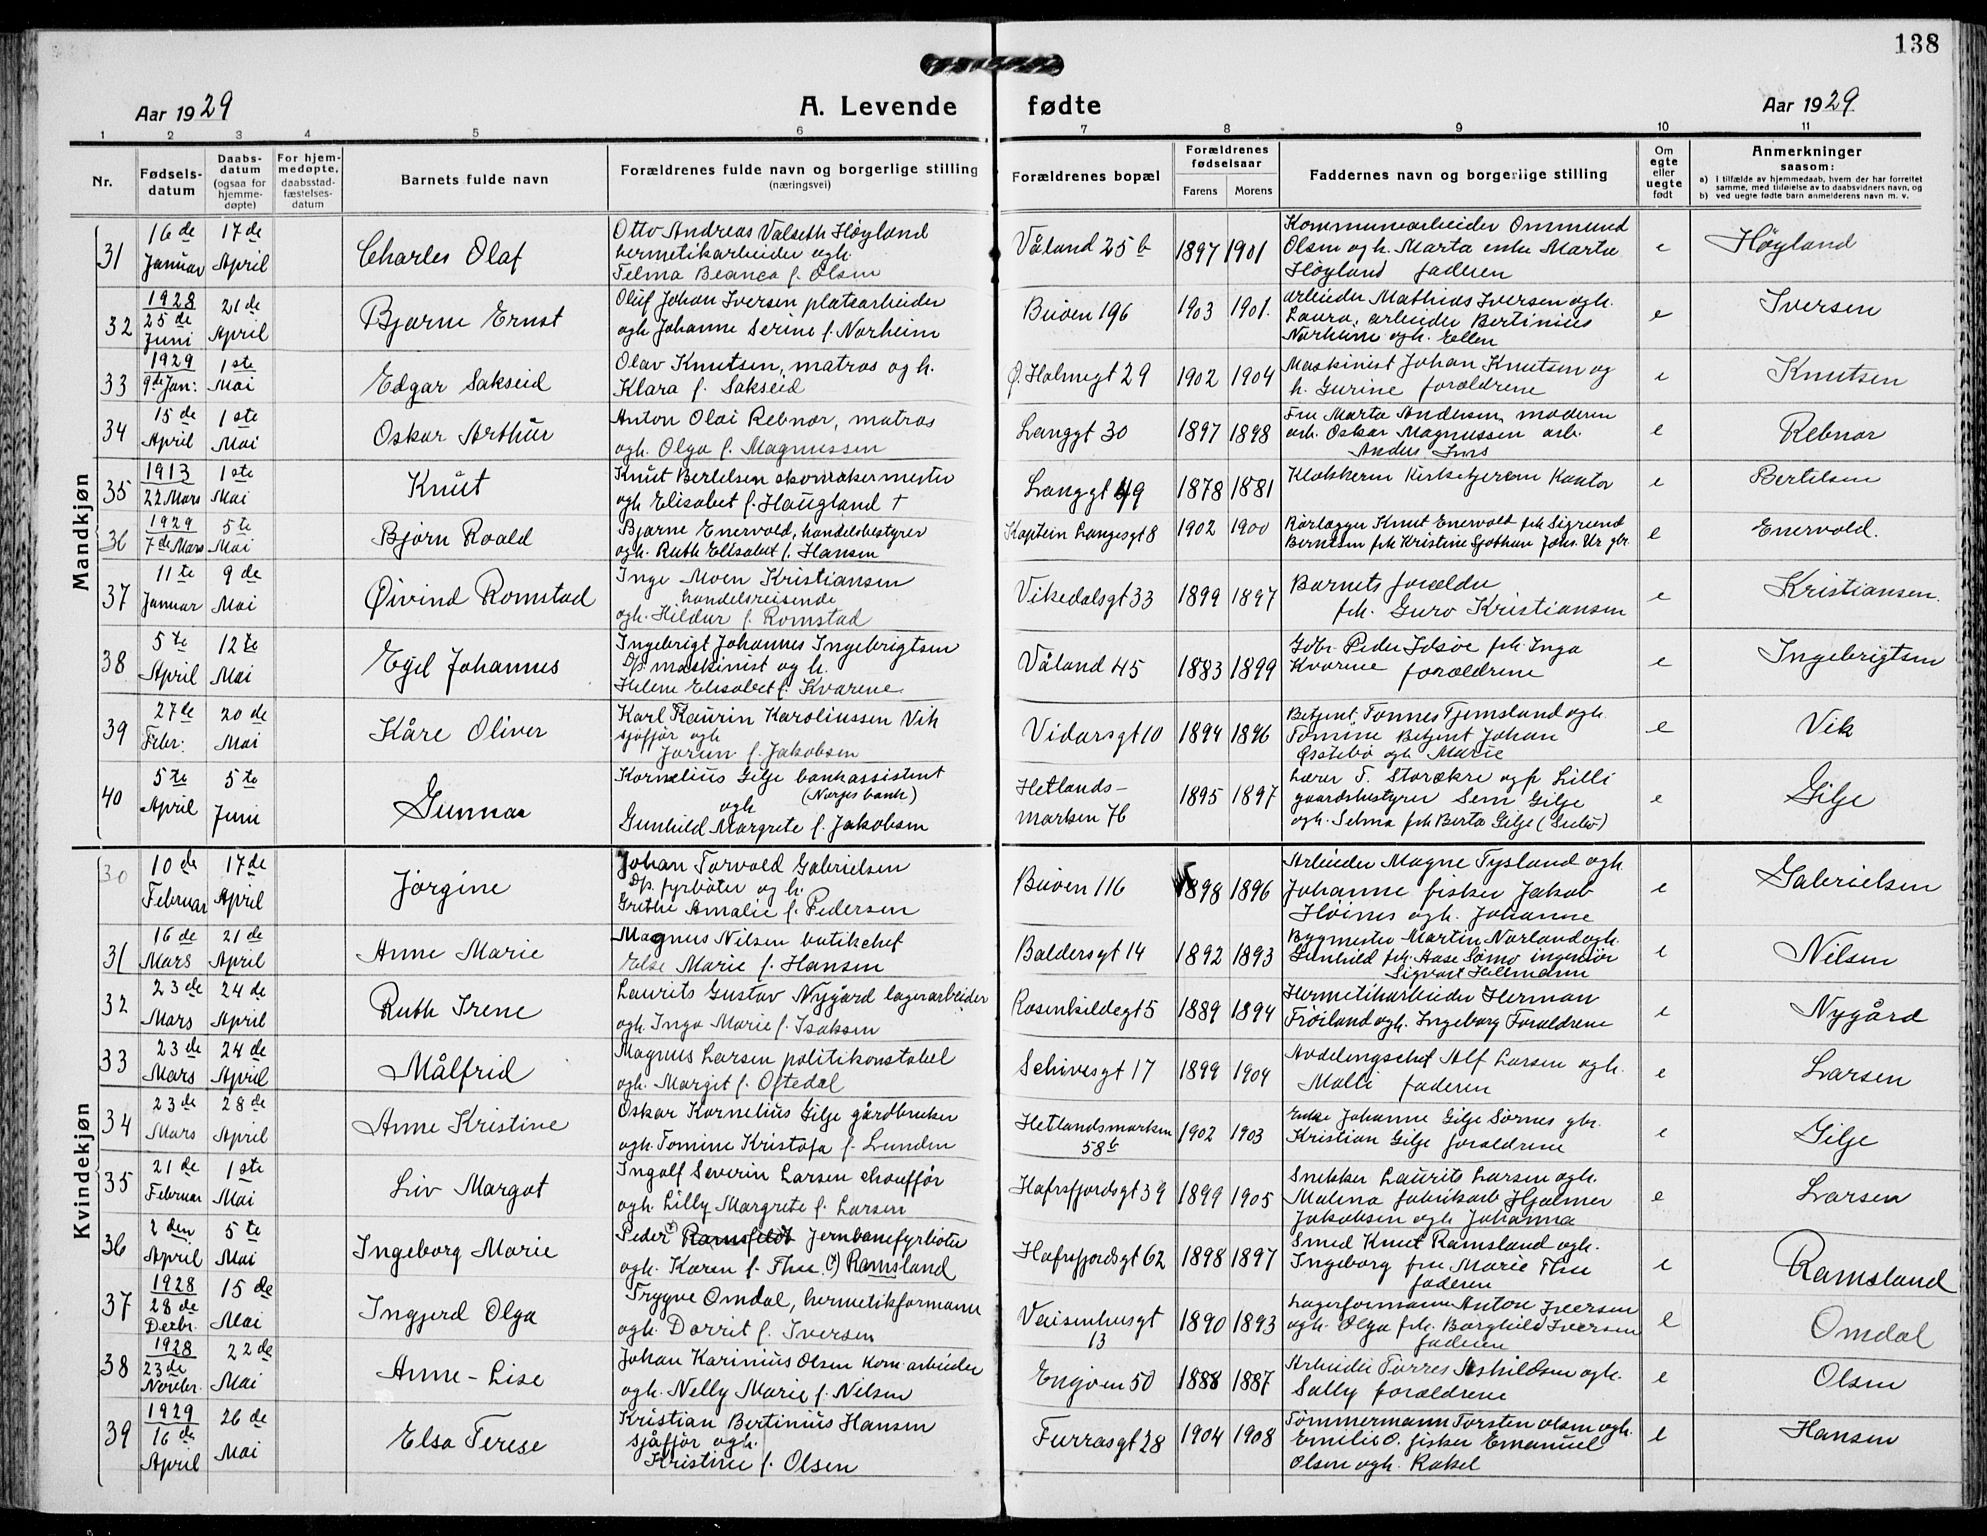 138
Aar 1929 A. Levende fødte Aar 1929
1 2 3 4 5 6 7 8 9 10 11
Nr. Fødsels-datum Daabs-datum (ogsaa for hjemme-døpte) For hjem-medøpte. daabsstad-fæstelses-datum Barnets fulde navn Forældrenes fulde navn og borgerlige stilling (næringsvei) Forældrenes bopæl Forældrenes fødselsaar Farens Morens Faddernes navn og borgerlige stilling Om egte eller uegte født Anmerkninger saasom:
a) I tilfælde av hjemmedaab, hvem der har forrettet samme, med tilføielse av to daabsvidners navn, og
b) ved uegte fødte barn anmelderens navn m. v.
Mandkjøn
31 16de Januar 17de April Charles Olaf
Otto Andreas Valseth Høyland
hermetikarbeider ogh.
Telma Beanca f. Olsen
Våland 25b 1897 1901
Kommunearbeider Ommund
Olsen ogh. Marta enke Marta
Høyland faderen
e Høyland
32 1928 25de Juni 21de April Bjarne Ernst
Oluf Johan Iversen platearbeider
ogh Johanne Serine f. Norheim
Buøen 196 1903 1901.
arbeider Mathias Iversen ogh.
Laura, arbeider Bertinius
Norheim ogh. Ellen
e Iversen
33 1929 9de Jan: 1ste Mai Edgar Sakseid
Olav Knutsen, matros og h.
Klara f. Sakseid
Ø. Holmegt 29 1902 1904
Maskinist Johan Knutsen og
h. Gurine forældrene
e Knutsen
34 15de April 1ste Mai Oskar Arthur
Anton Olai Rebnor, matros
ogh. Olga f. Magnussen
Langgt 30 1897 1898
Fru Marta Andersen, moderen
arb. Oskar Magnussen arb.
Anders
e Rebnor
35 1913 22 Mars 1ste Mai Knut
Knut Bertelsen skomakermester
ogh. Elisabet f. Haugland †
Langgt 49 1878 1881
Klokkeren Kirketjeren Kantor
e Bertelsen
36 1929 7de Mars 5te Mai Bjørn Roald
Bjarne Enervold, handelsbestyrer
ogh. Ruth Elisabet f. Hansen
Kaptein Langesgt 8 1902 1900
Rørlægger Knut Enervold frk Sigrund
Berntsen frk Kristine Sjøthun Johs. Ur gbr.
e Enervold.
37 11te Januar 9de Mai Øivind Romstad
Inge Moen Kristiansen
handelsreisende
ogh. Hildur f. Romstad
Vikedalsgt 33 1899 1897
Barnets forældre
frk. Guro Kristiansen
e Kristiansen.
38 5te April 12te Mai Egil Johannes
Ingebrigt Johannes Ingebrigtsen
D/s maskinist og h.
Helene Elisabet f. Kvarene.
Våland 45 1883 1899
Gdbr. Peder Idsøe frk. Inga
Kvarene forældrene
e Ingebrigtsen
39 27de Febr: 20de Mai Kåre Oliver
Karl Kaurin Karoliussen Vik
sjåfjør ogh
Jorun f. Jakobsen
Vidarsgt 10 1894 1896
Betjent. Tønnes Tjemsland ogh.
Tomine Betjent Johan
Østebø ogh Marie
e Vik
40 5te April 5te Juni Gunnar
Kornelius Gilje bankassistent
ogh (Norges bank)
Gunhild Margrete f. Jakobsen
Hetlands-
marken 76 1895 1897
Lærer T. Storækre ogfr Lilli
gaardsbestyrer Sem Gilje
ogh. Selma frk Berta Gilje
e Gilje
Kvindekjøn
30 10de Februar 17de April Jørgine
Johan Torvald Gabrielsen
D/s. fyrbøter og h.
Grethe Amalie f. Pedersen
Buøen 116 1898 1896
Arbeider Magne Tysland ogh
Johanne fisker Jakob
Høines ogh. Johanne
e Gabrielsen
31 16de Mars 21de April Anne Marie
Magnus Nilsen butikchef
Else Marie f. Hansen
Baldersgt 14 1892 1893
Bygmester Martin Norland ogh.
Gunhild frk. Aase Sømo ingeniør
Sigvart Hellmann
e Nilsen
32 23de Mars 24de April Ruth Irene
Laurits Gustav Nygård lagerarbeider
ogh. Inga Marie f. Isaksen
Rosenkildegt 5 1889 1894
Hermetikarbeider Herman
Frøiland ogh. Ingeborg Forældrene
e Nygård
33 23de Mars 24de April Målfrid
Magnus Larsen politikonstabel
ogh. Margit f. Oftedal
Schivesgt 17 1899 1904
Avdelingschef Alf Larsen ogh.
Malli faderen
e Larsen
34 23de Mars 28de April Anne Kristine
Oskar Kornelius Gilje gårdbruker
ogh. Tomine Kristofa f. Lunden
Hetlandsmarken
58b 1902 1903
Enke Johanne Gilje Sørnes gbr.
Kristian Gilje forældrene
e Gilje
35 21de Februar 1ste Mai Liv Margot
Ingolf Severin Larsen chauffør
ogh. Lilly Margrete f. Larsen
Hafrsfjordsgt 39 1899 1905
Snekker Laurits Larsen ogh.
Malena fabrikarb Hjalmer
Jakobsen ogh Johanna
e Larsen
36 2den April 5te Mai Ingeborg Marie
Peder + Ramsfeldt Jernbanefyrbøter
ogh. Karen f. Thue +) Ramsland
Hafrsfjordsgt 62 1898 1897
Smed Knut Ramsland ogh.
Ingeborg fru Marie Thue
faderen
e Ramsland
37 1928 28de Decbr. 15de Mai Ingjerd Olga
Trygve Omdal, hermetikformann
ogh. Dorrit f. Iversen
Veisenhusgt
13 1890 1893
Lagerformann Anton Iversen
ogh. Olga frk. Borghild Iversen
faderen
e Omdal
38 1928 23de Novbr. 22de Mai Anne-Lise
Johan Karinius Olsen kom. arbeider
ogh. Nelly Marie f. Nilsen
Engøen 50 1888 1887
Arbeider Torres Askildsen ogh.
Sally forældrene
e Olsen
39 1929 16de April 26de Mai Elsa Terese
Kristian Bertinius Hansen
sjåfjør ogh.
Kristine f. Olsen
Furrasgt 28 1904 1908
Tømmermann Torsten Olsen ogh.
Emilie O. fisker Emanuel
Olsen ogh. Rakel
e Hansen